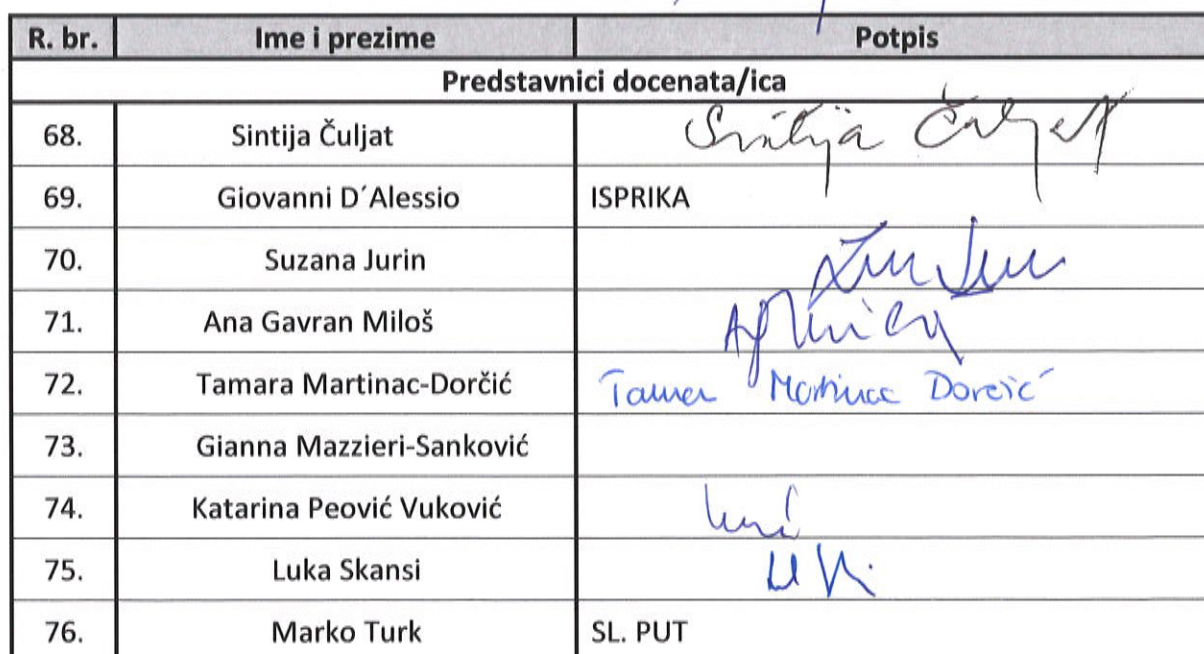 R. br. Ime i prezime Potpis
Predstavnici docenata/ica
68. Sintija Čuljat Sintija Čuljat
69. Giovanni D´Alessio ISPRIKA
70. Suzana Jurin
71. Ana Gavran Miloš
72. Tamara Martinac-Dorčić Tamara Martinac Dorčić
73. Gianna Mazzieri-Sanković
74. Katarina Peović Vuković
75. Luka Skansi
76. Marko Turk SL. PUT